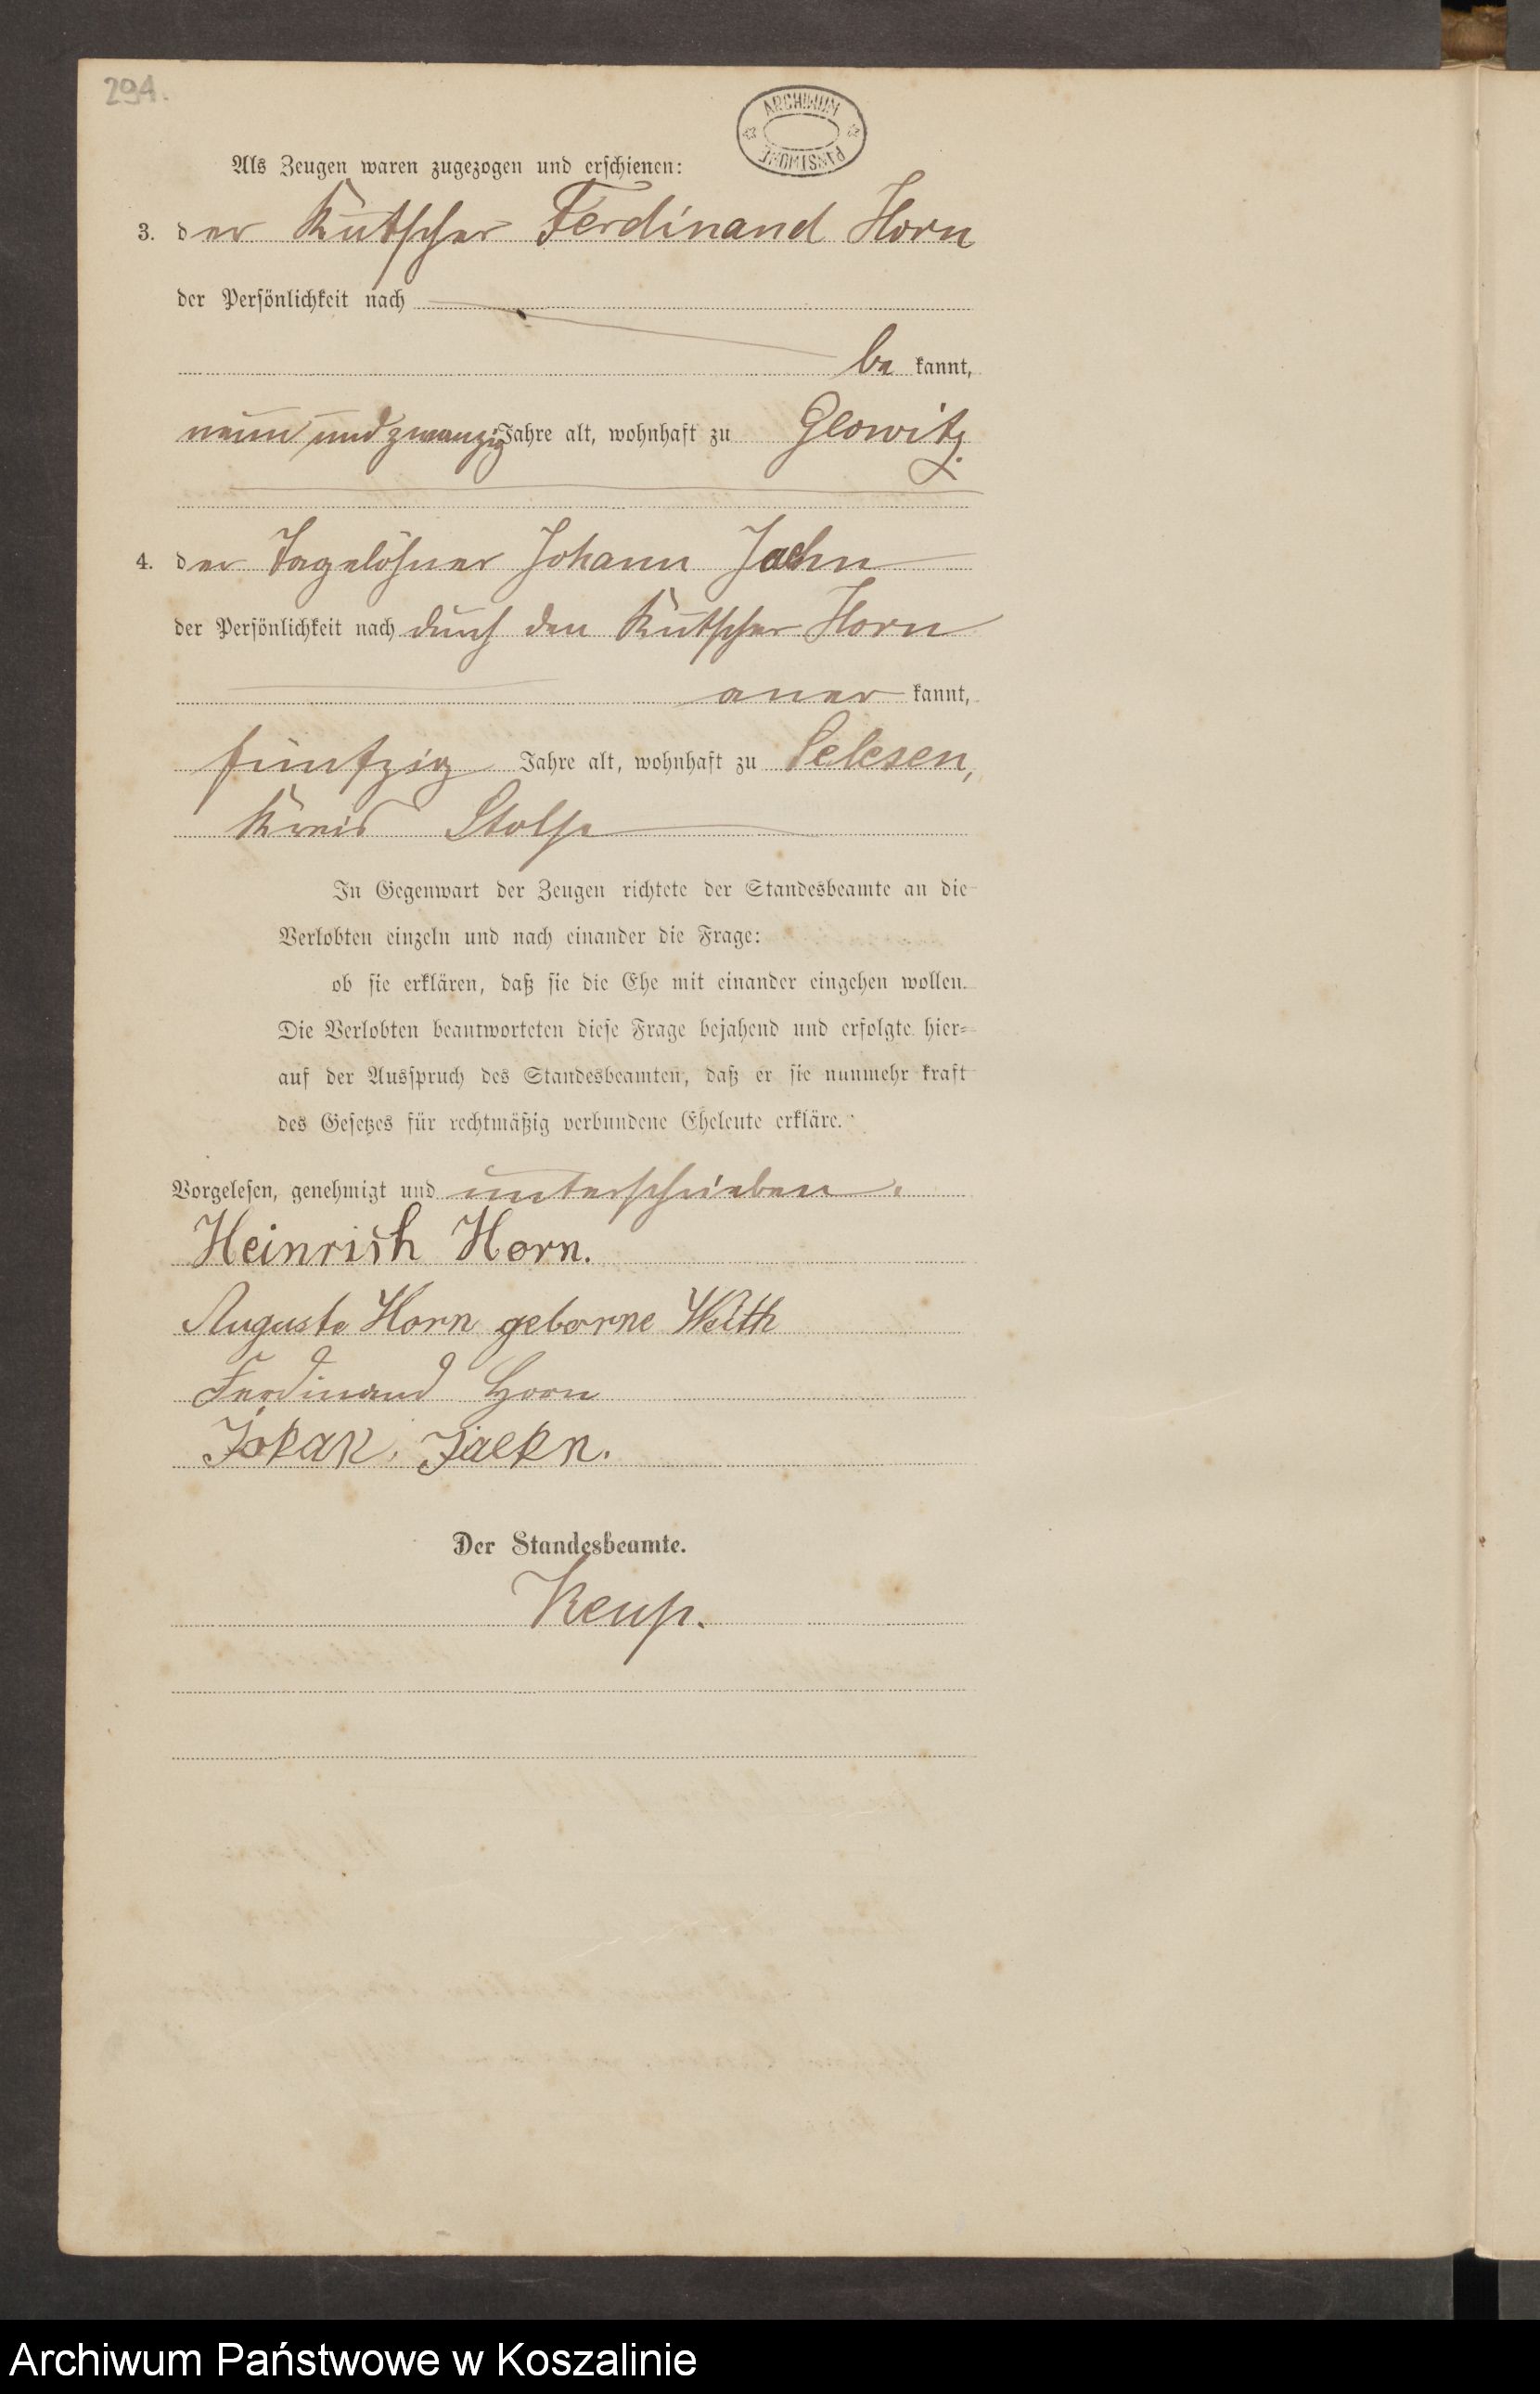 294.
ARCHIWUM
PAŃSTWOWE
Als Zeugen waren zugezogen und erschienen:
3. der Kutscher Ferdinand Horn
der Persönlichkeit nach
be kannt,
neun und zwanzig Jahre alt, wohnhaft zu Glowitz.
4. der Tagelöhner Johann Jaehn
der Persönlichkeit nach durch den Kutscher Horn
aner kannt,
fünfzig Jahre alt, wohnhaft zu Selesen,
Kreis Stolp
In Gegenwart der Zeugen richtete der Standesbeamte an die
Verlobten einzeln und nach einander die Frage:
ob sie erklären, daß sie die Ehe mit einander eingehen wollen.
Die Verlobten beantworteten diese Frage bejahend und erfolgte hier-
auf der Ausspruch des Standesbeamten, daß er sie nunmehr kraft
des Gesetzes für rechtmäßig verbundene Eheleute erkläre.
Vorgelesen, genehmigt und unterschrieben.
Heinrich Horn.
Auguste Horn geborne
Ferdinand Horn
Jaehn.
Der Standesbeamte.
Keup.
Archiwum Państwowe w Koszalinie